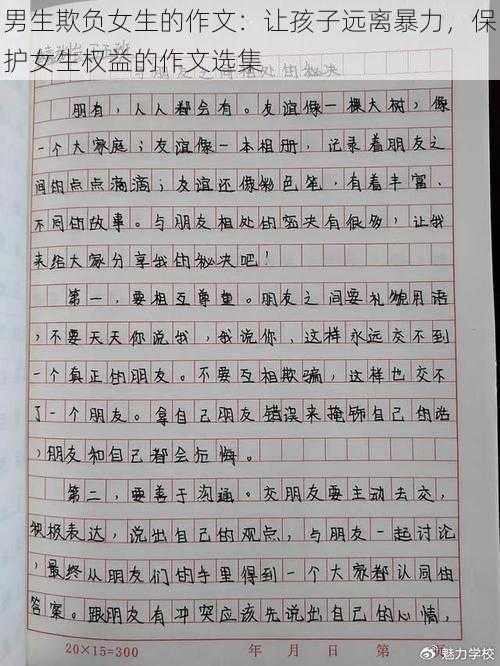 男生欺负女生的作文：让孩子远离暴力，保
护女生权益的作文选集
与朋友之间相处的秘决
朋有，人人都会有。友谊像一棵大树，像
一个大家庭；友谊像一本相册，记录着朋友之
间的点点滴滴；友谊还像彩色笔，有着丰富、
不同的故事。与朋友相处的密决有很多，让我
来给大家分享我的秘决吧！
第一，要相互尊重。朋友之间要礼貌用语
，不要天天你说我，我说你，这样永远交不到
一个真正的朋友。不要互相欺骗，这样也交不
了一个朋友。拿自己朋友错误来掩饰自己的话
，朋友和自己都会后悔。
第二，要善于沟通。交朋友要主动去交，
积极表达，说出自己的观点，与朋友一起讨论
，最终从朋友们的手里得到一个大家都认同的
答案。跟朋友有冲突应该先说出自己的心情，
20×15=300 年 月 日 第
魅力学校